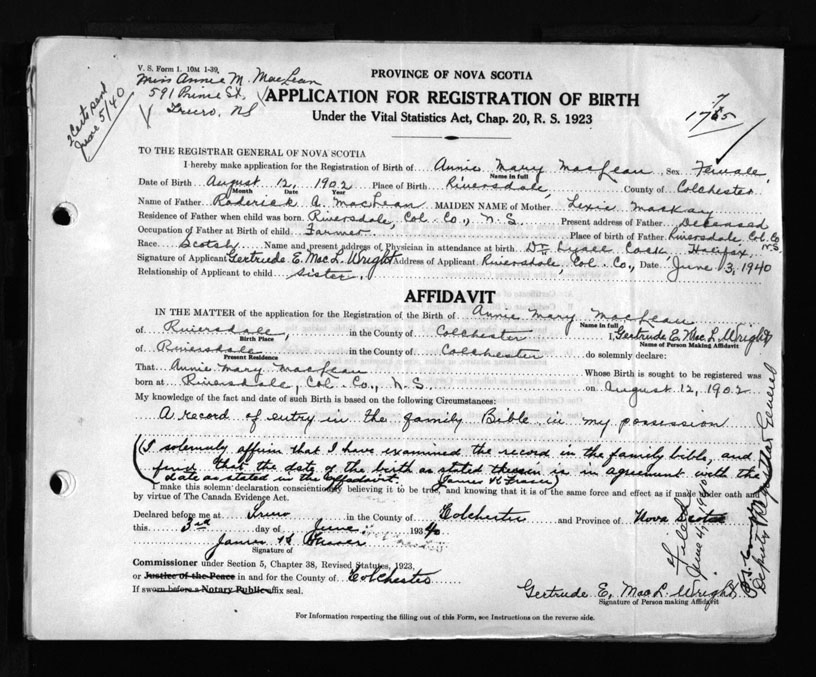 V. S. Form 1. 10M 1-39.
Miss Annie M. MacLean
591 Prince St.
Truro, NS
Certs sent
June 5/40
PROVINCE OF NOVA SCOTIA
APPLICATION FOR REGISTRATION OF BIRTH
Under the Vital Statistics Act, Chap. 20, R. S. 1923
TO THE REGISTRAR GENERAL OF NOVA SCOTIA
I hereby make application for the Registration of Birth of Annie Mary MacLean Sex Female
Name in full
Date of Birth August 12, 1902 Place of Birth Riversdale, County of Colchester
Month Date Year
Name of Father Roderick A. MacLean MAIDEN NAME of Mother Lexie MacKay
Residence of Father when child was born Riversdale, Col. Co., N. S. Present address of Father Deceased
Occupation of Father at Birth of child Farmer Place of birth of Father Riversdale, Col. Co. N. S.
Race Scotch Name and present address of Physician in attendance at birth Dr. Lyall Cock Halifax,
Signature of Applicant Gertrude E. Mac L. Wright Address of Applicant Riversdale, Col. Co., Date June 3, 1940
Relationship of Applicant to child Sister
AFFIDAVIT
IN THE MATTER of the application for the Registration of the Birth of Annie Mary MacLean
Name in full
of Riversdale, in the County of Colchester I, Gertrude E. Mac L. Wright
Birth Place Name of Person Making Affidavit
of Riversdale in the County of Colchester do solemnly declare:
Present Residence
That Annie Mary MacLean Whose Birth is sought to be registered was
born at Riversdale, Col. Co., N. S. on August 12, 1902
My knowledge of the fact and date of such Birth is based on the following Circumstances:
A record of entry in the family Bible in my possession
(I solemnly affirm that I have examined the record in the family bible, and
find that the date of the birth as stated therein is in agreement with the
date as stated in the affadavit. James H Fraser)
I make this solemn declaration conscientiously believing it to be true, and knowing that it is of the same force and effect as if made under oath and
by virtue of The Canada Evidence Act.
Declared before me at Truro in the County of Colchester and Province of Nova Scotia
this 3rd day of June 1940
James H Fraser
Signature of
Commissioner under Section 5, Chapter 38, Revised Statutes, 1923,
or Justice of the Peace in and for the County of Colchester
If sworn before a Notary Public affix seal.
Gertrude E. Mac L. Wright
Signature of Person making Affidavit
Filed
June 4, 1940
Deputy Registrar General
For Information respecting the filling out of this Form, see Instructions on the reverse side.